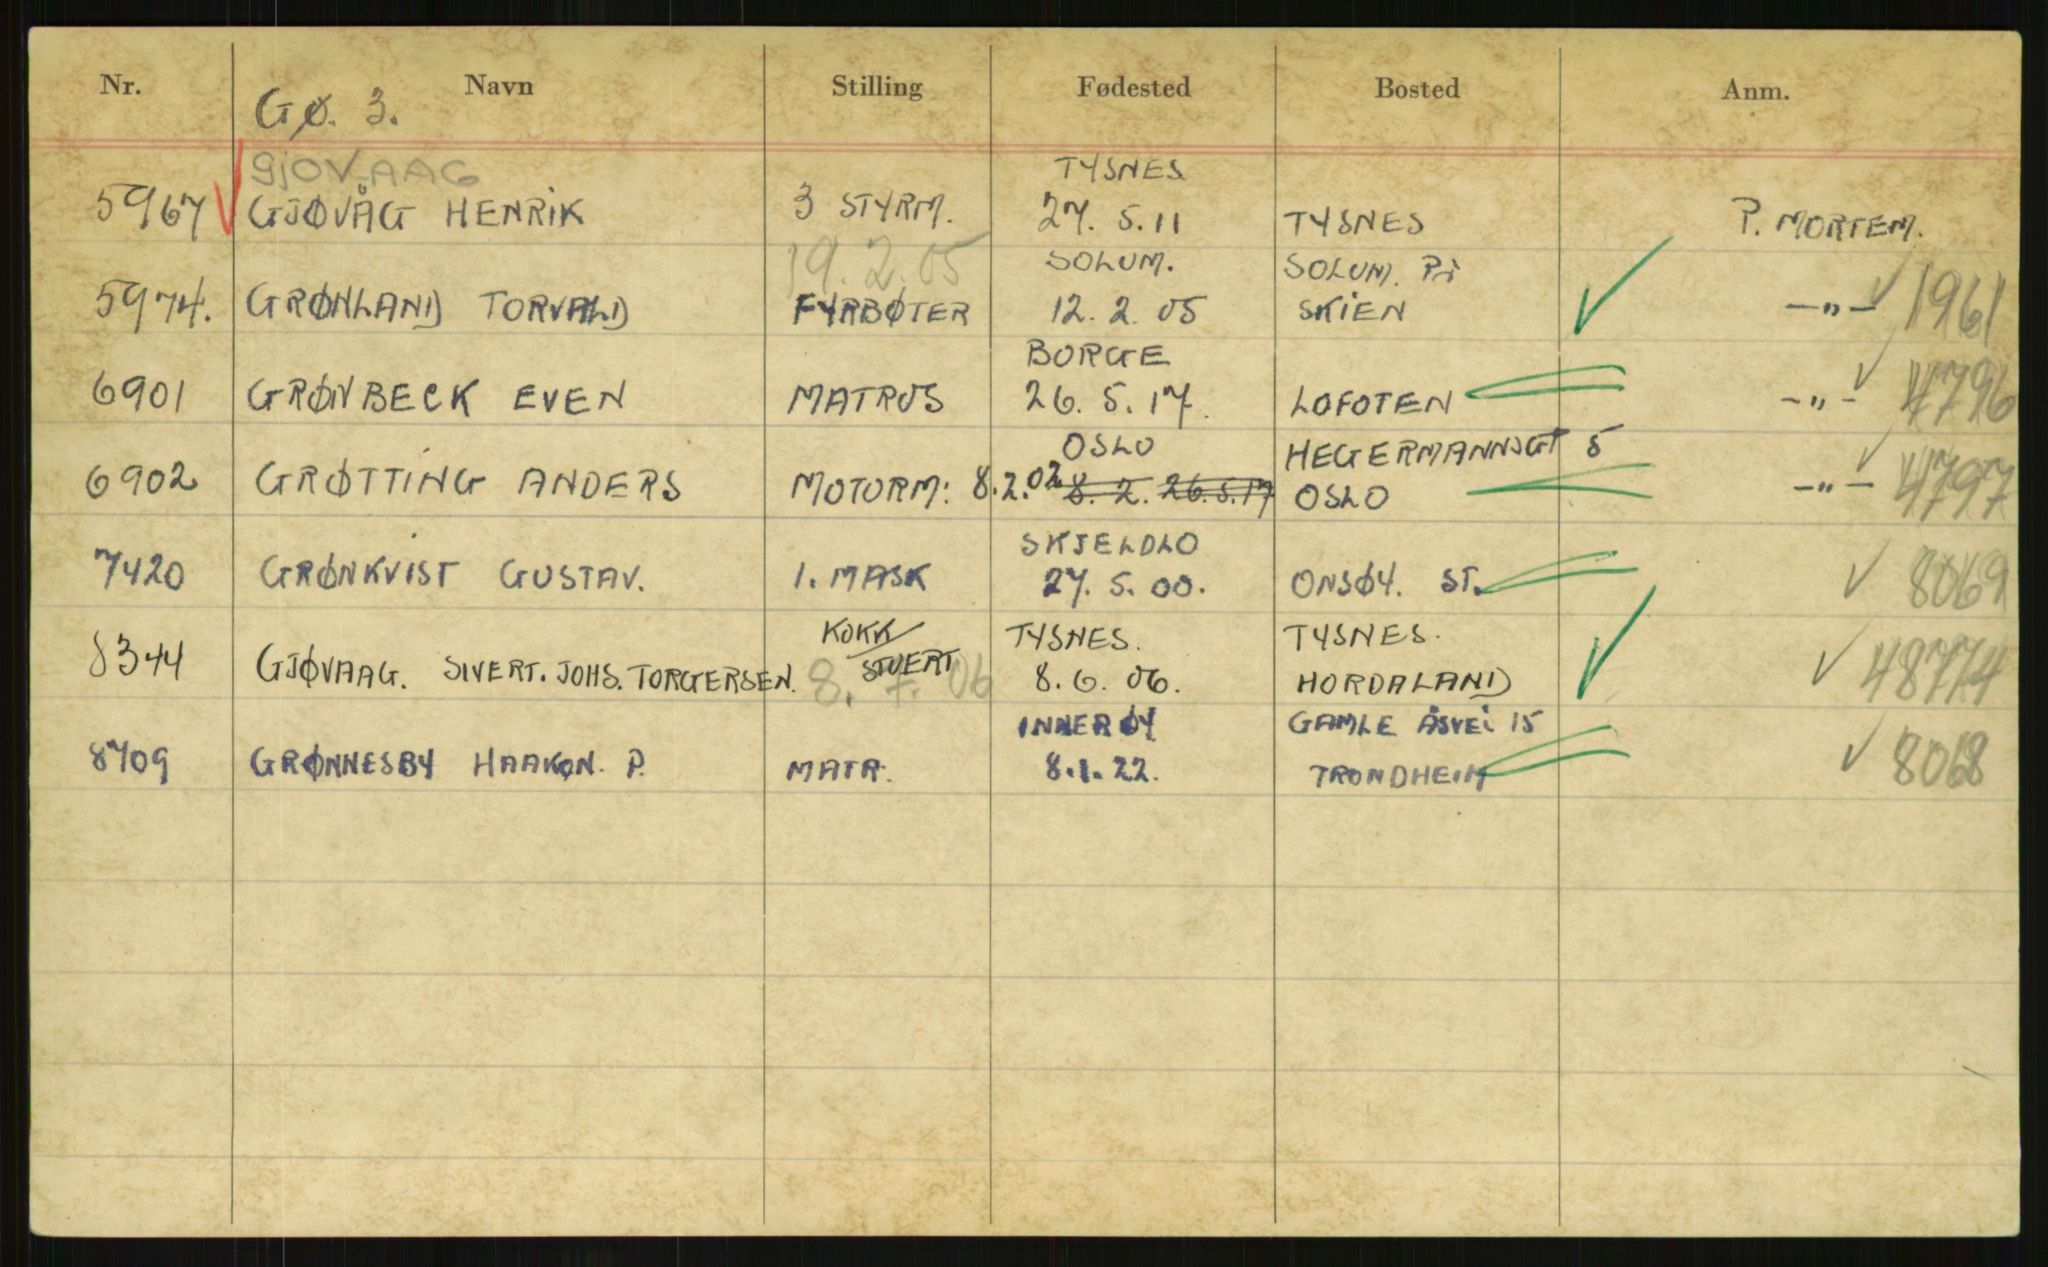 Nr. Navn Stilling Fødested Bosted Anm.
GØ. 3.
GjOVAAG TYSNES
5967 GJØVÅG HENRIK 3 STYRM. 27. 5. 11 TYSNES P. MORTEM.
19. 2. 05 SOLUM. SOLUM. På
5974. GRØNLAND TORVALD FYRBØTER 12. 2. 05 SKIEN —„— 1961
BORGE
6901 GRØNBECK EVEN MATROS 26. 5. 17. LOFOTEN —„— 4796
OSLO HEGERMANNSGT 5
6902 GRØTTING ANDERS MOTORM: 8.2.02 8. 2. 26.5.17 OSLO —„— 4797
SKJELDLO
7420 GRØNKVIST GUSTAV. 1. MASK 27. 5. 00. ONSØY. ST. 8069
KOKK/ TYSNES. TYSNES.
8344 GJØVAAG. SIVERT. JOHS. TORGERSEN. STUERT 8. 7. 06 8. 6. 06. HORDALAND 48774
INNERØY GAMLE ÅSVEI 15
8709 GRØNNESBY HAAKON. P. MATR. 8.1. 22. TRONDHEIM 8068